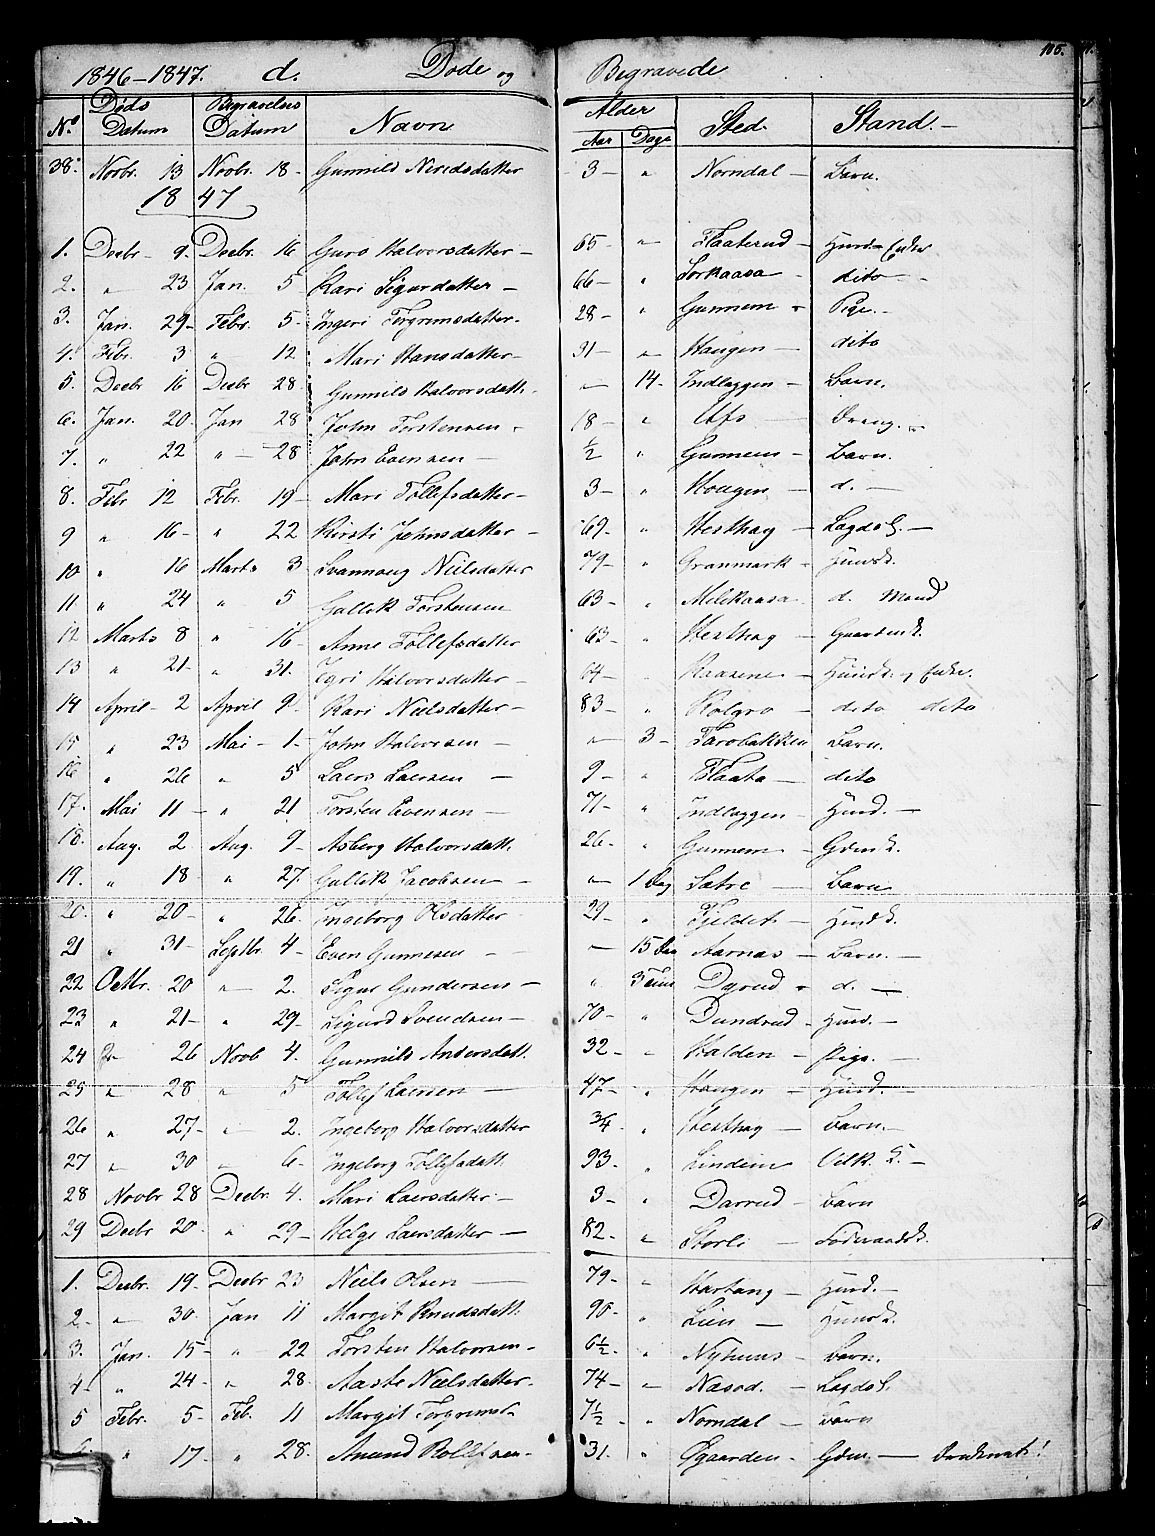 1846–1847. d. Døde og Begravede 116.
No Døds Datum Begravelses Datum Navn Alder Aar Dage Sted. Stand.
38. Novbr. 13 Novbr. 18 Gunnild Niridsdatter 3 " Norndal Barn.
1847
1. Decbr. 9. Decbr. 16 Guro Halvorsdatter 65 " Flaaterud Huusm. Enke
2. " 23 Jan. 5 Kari Sigurdatter 66 " Torkaasa dito
3. Jan. 29 Febr. 5 Ingeri Torgrimsdatter 28 " Gunnem Pige.
4. Febr. 3 " 12 Mari Hansdatter 31 " Haugen dito
5. Decbr 16 Decbr 28 Gunnild Halvorsdatt. " 14 Indlæggen Barn.
6. Jan. 20 Jan 28 John Torstensen 18 " Ufs Dreng.
7. " 22 " 28 John Evensen ½ " Gunnem Barn.
8. Febr 12 Febr. 19 Mari Tollefsdatter 3 " Hougen d.
9 " 16 " 22 Kirsti Johnsdatter 69 " Hesthag Lægdsl.
10 " 16 Marts 3 Svannoug Nielsdatter 79 " Granmark Huusk.
11 " 24 " 5 Gullik Torstensen 63 " Milikaasa d. Mand
12 Marts 8 " 16 Anne Tollefsdatter 63 " Hesthag
13 " 21 " 31. Egri Halvorsdatter 64 " Kaasene Huusk. Enke.
14 April 2 April 9 Kari Nielsdatter 83 " Kolgro dito dito
15 " 23 Mai 1 John Halvorsen " 3 Tarobakken Barn.
16 " 26 " 5 Laers Laersen 9 " Flaata dito
17. Mai 11 " 21 Torsten Evensen 71 " Indlæggen Huusm.
18. Aug. 2 Aug. 9 Asberg Halvorsdatt. 26 " Gunnem Gdmk.
19. " 18 " 27. Gullik Jacobsen " 1 Dag Sætre Barn
20. " 20 " 26. Ingeborg Olsdatter 29 " Fjeldet Huusk.
21 " 31 Septbr. 4 Even Gunnesen " 15 Dag Aarnæs Barn.
22 Octbr. 20 " 2. Gundersen " 3 Time Dyrud d.
23 " 21 " 29 Sigurd Svendsen 70 " Dundrud Huusm.
24 " 26 Novb 4. Gunnild Andersdatt. 32 " Halden Pige.
25 " 28 " 5 Tollef Laersen 47 " Haugen Huusm.
26 " 27 " 2. Ingeborg Halvorsdatter ¾ " Hesthag Barn.
27 " 30 " 6. Ingeborg Tollefsdatt. 93 " Lindeim
28 Novbr 28 Decbr 4. Mari Laersdatter 3 " Darrud Barn
29 Decbr 20 " 29 Helge Laersdatter 82 " Storli Føderaadsk.
1. Decbr. 19 Decbr 23 Niels Olsen 79 " Hartang Huusm.
2. " 30 Jan 11 Margit Knudsdatt. 90 " Lien Huusk.
3. Jan. 15 " 22 Torsten Halvorsen 6½ " Nyhuus Barn.
4 " 24 " 28. Aaste Nielsdatter 74 " Næsød. Lægdsl.
5 Febr. 5 Feb. 11 Margit Torgrimsd. 7½ " Norndal Barn
6. " 17 " 28. Amund Rollefsen 31. " Øgaarden Gdm. druknet!